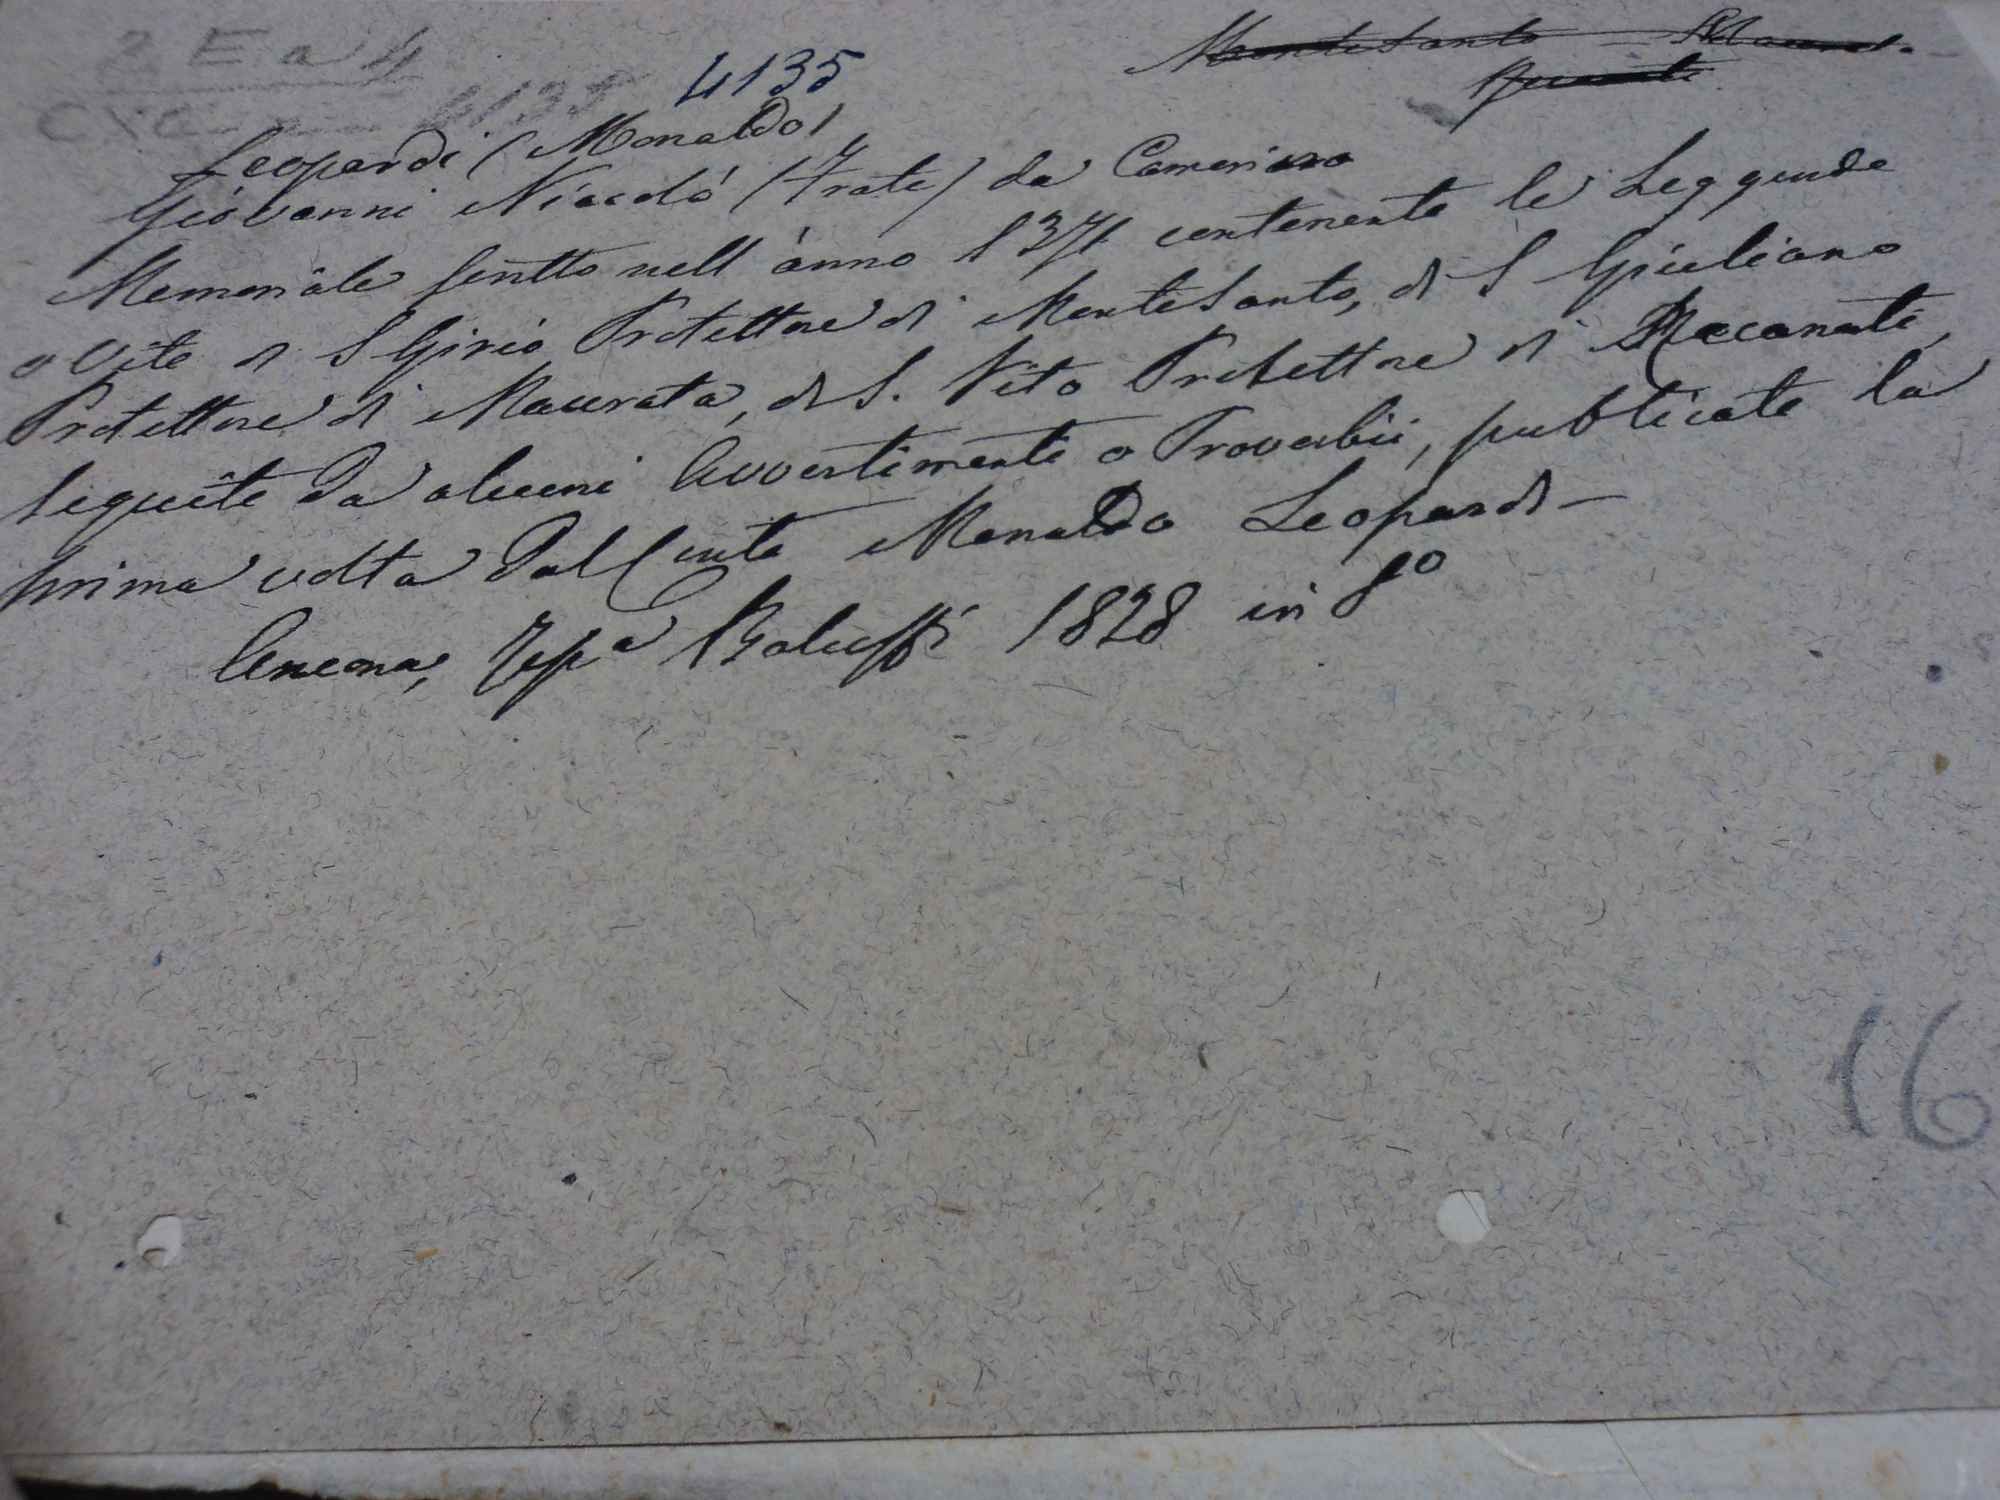 2 E a 4
4135
4135
Montesanto — Macerata
Leopardi (Monaldo)
Giovanni Niccoló (Frate) da Camerino
Memoriale scritto nell'anno 1371 contenente le Leggende
o Vite di S Girio Protettore di Montesanto, di S Giuliano
Protettore di Macerata, di S. Vito Protettore di Recanati,
seguite da alcuni Avvertimenti o Proverbii, publicate la
prima volta dal Conte Monaldo Leopardi —
Ancona, Tipª Baluffi 1828 in 8º
16